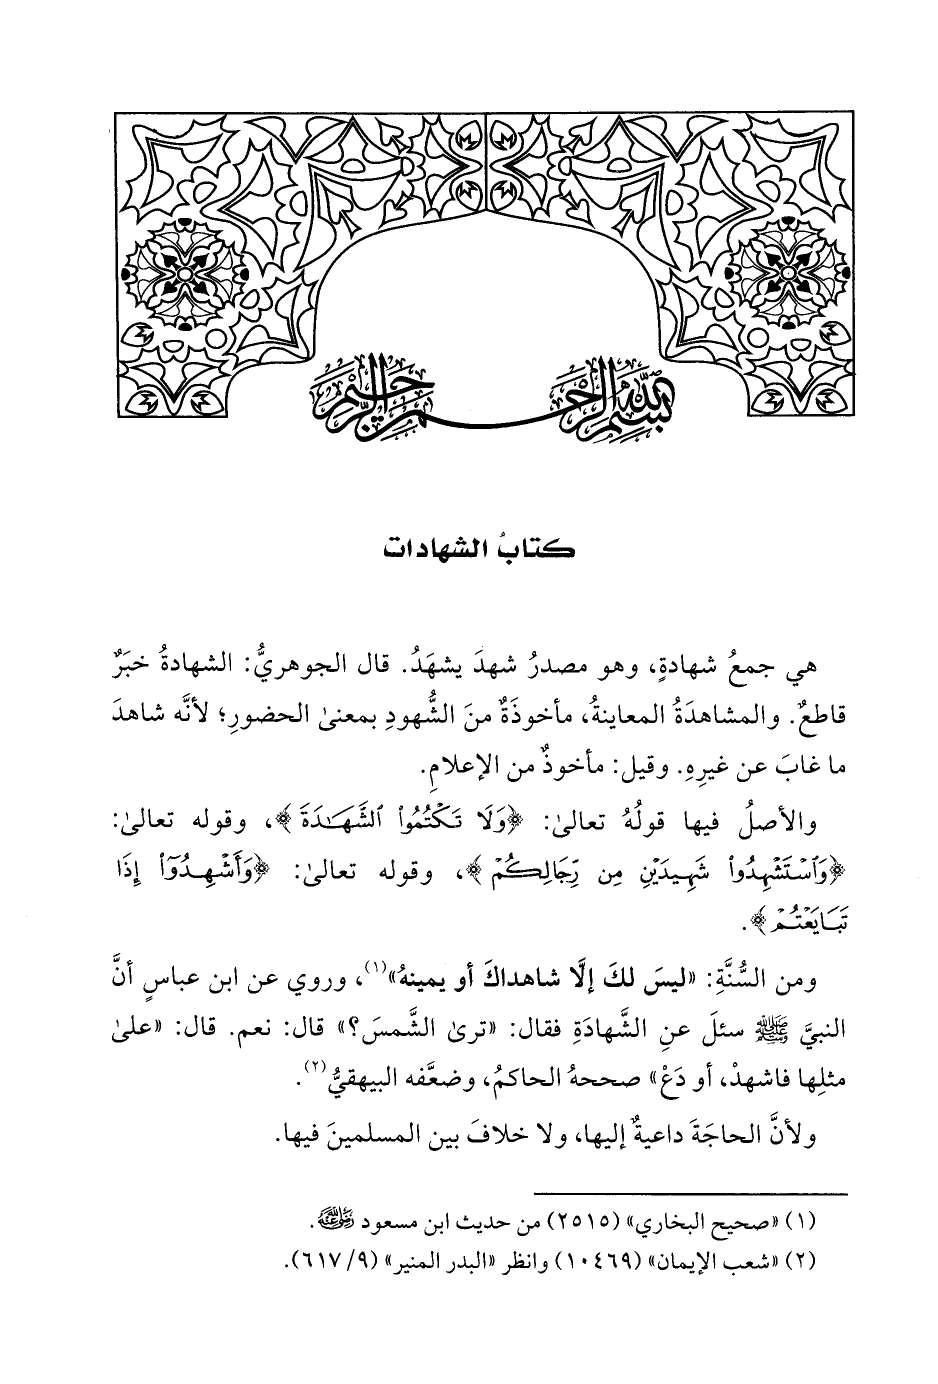 بسم الله الرحمن الرحيم
كتابُ الشهادات
هي جمعُ شهادةٍ، وهو مصدرُ شهدَ يشهَدُ. قال الجوهريُّ: الشهادةُ خبَرٌ
قاطعٌ. والمشاهدَةُ المعاينةُ، مأخوذَةٌ منَ الشُّهودِ بمعنىٰ الحضورِ؛ لأنَّه شاهدَ
ما غابَ عن غيرِهِ. وقيل: مأخوذٌ من الإعلامِ.
والأصلُ فيها قولُهُ تعالىٰ: ﴿وَلَا تَكْتُمُوا۟ ٱلشَّهَـٰدَةَ﴾، وقوله تعالىٰ:
﴿وَٱسْتَشْهِدُوا۟ شَهِيدَيْنِ مِن رِّجَالِكُمْ﴾، وقوله تعالىٰ: ﴿وَأَشْهِدُوٓا۟ إِذَا
تَبَايَعْتُمْ﴾.
ومن السُّنَّةِ: «ليسَ لكَ إلَّا شاهداكَ أو يمينهُ»(١)، وروي عن ابن عباسٍ أنَّ
النبيَّ ﷺ سئلَ عنِ الشَّهادَةِ فقال: «ترىٰ الشَّمسَ؟» قال: نعم. قال: «علىٰ
مثلِها فاشهدْ، أو دَعْ» صححهُ الحاكمُ، وضعَّفه البيهقيُّ(٢).
ولأنَّ الحاجَةَ داعيةٌ إليها، ولا خلافَ بين المسلمينَ فيها.
(١) «صحيح البخاري» (٢٥١٥) من حديث ابن مسعود رضي الله عنه.
(٢) «شعب الإيمان» (١٠٤٦٩) وانظر «البدر المنير» (٩/ ٦١٧).